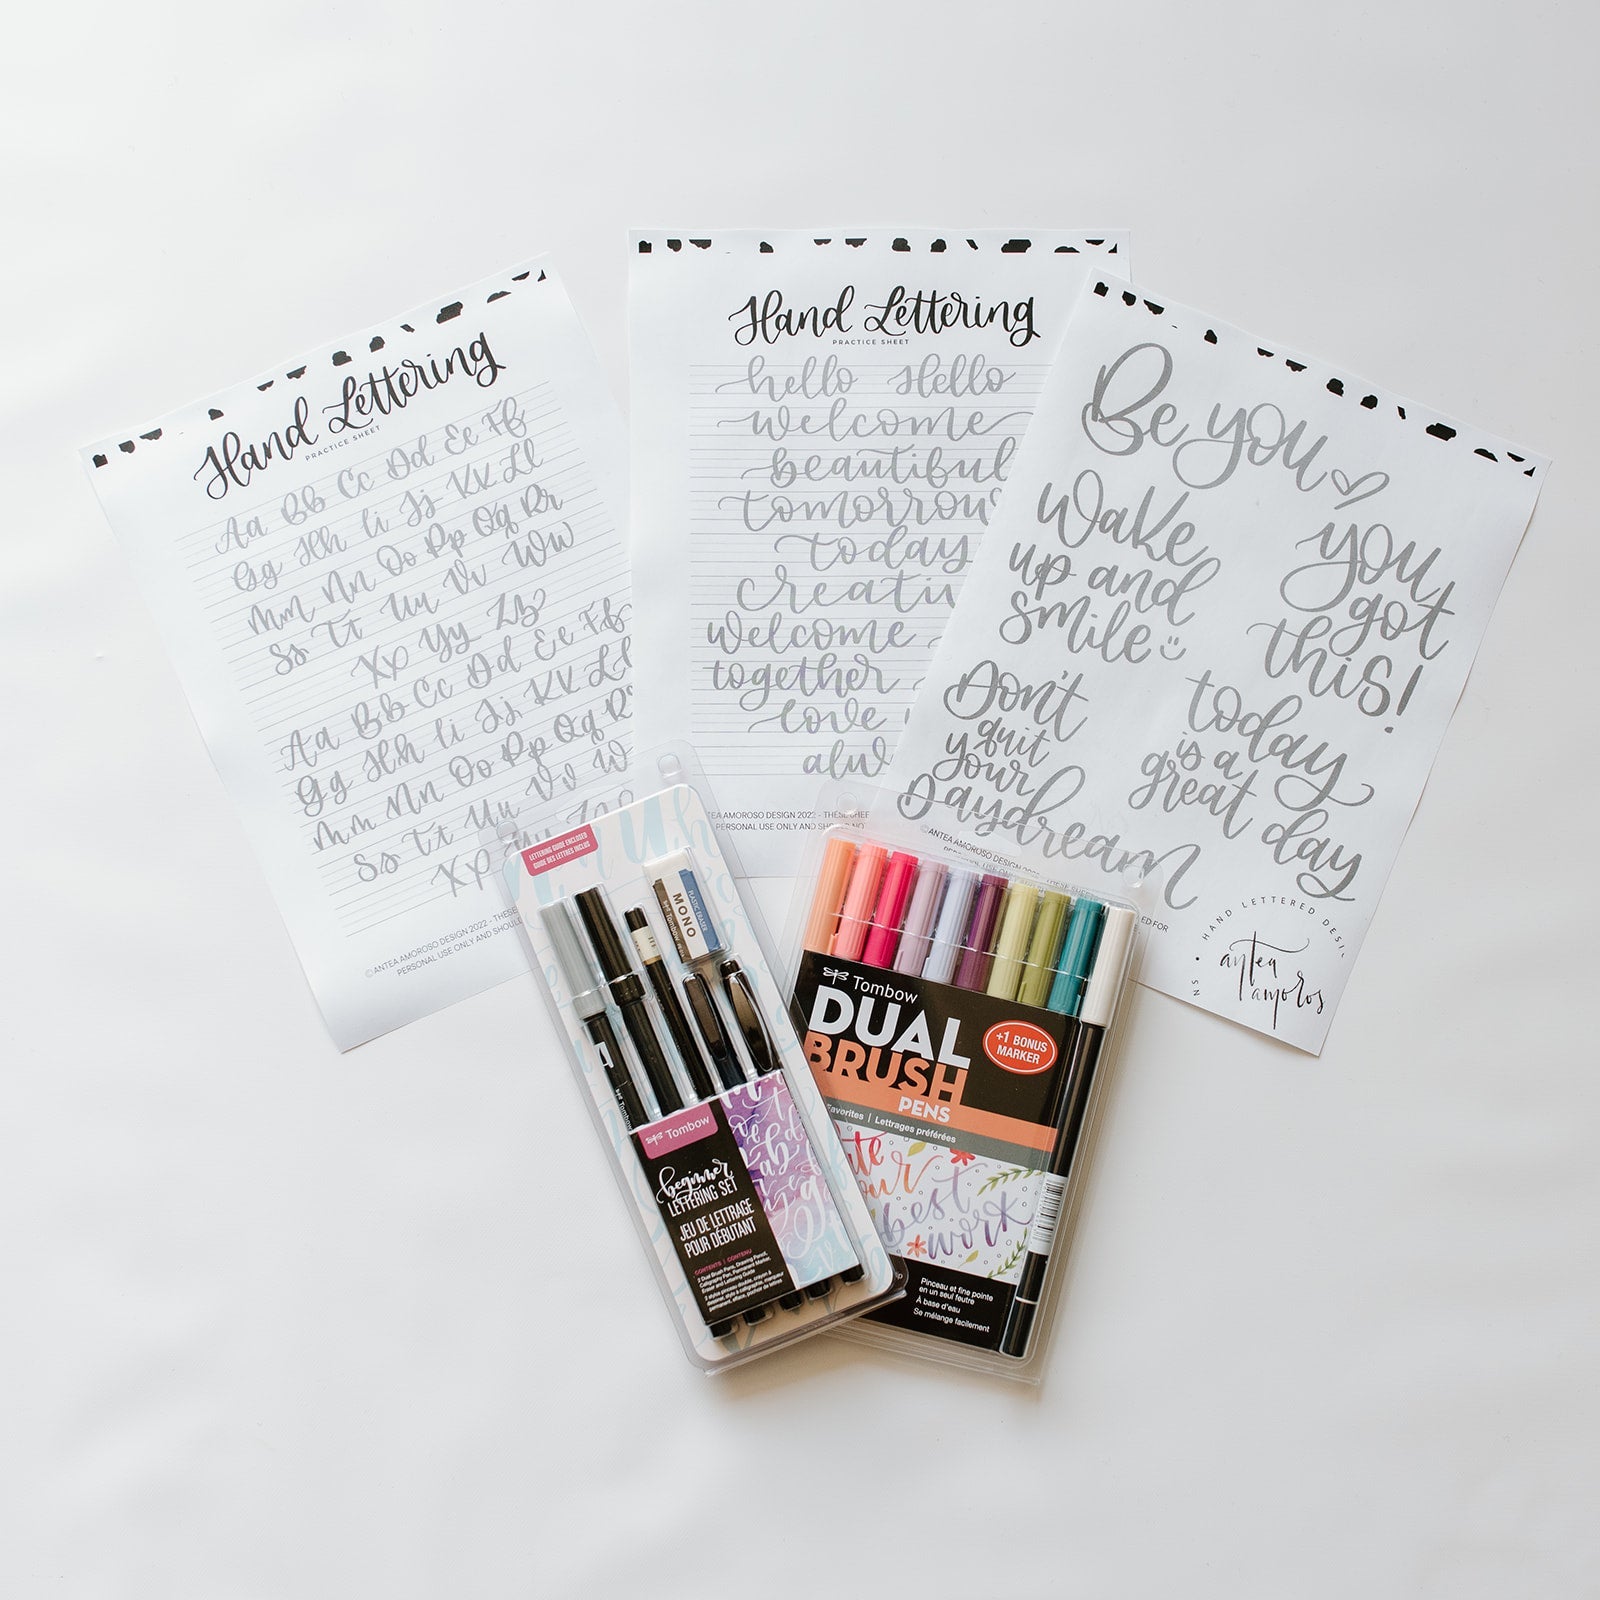 Hand Lettering
PRACTICE SHEET
Aa Bb Cc Dd Ee Ff
Gg Hh Ii Jj Kk Ll
Mm Nn Oo Pp Qq Rr
Ss Tt Uu Vv Ww
Xx Yy Zz
Aa Bb Cc Dd Ee Ff
Gg Hh Ii Jj Kk Ll
Mm Nn Oo Pp Qq R
Ss Tt Uu Vv W
Xx Yy Zz
©ANTEA AMOROSO DESIGN 2022 - THESE
PERSONAL USE ONLY AND SHOUL
Hand Lettering
PRACTICE SHEET
hello Hello
welcome
beautiful
tomorrow
today
creativ
welcome
together
love
alw
ANTEA AMOROSO DESIGN 2022 - THESE SHEE
PERSONAL USE ONLY AND SHOULD NO
Be you
Wake
up and
smile
you
got
this!
Don't
quit
your
Daydream
today
is a
great day
©ANTEA AMOROSO DESIGN 2022 - THESE SHEETS
HAND LETTERED DESIGNS
antea
amoroso
LETTERING GUIDE ENCLOSED
GUIDE DES LETTRES INCLUS
MONO
PLASTIC ERASER
Tombow
Tombow
beginner
LETTERING SET
JEU DE LETTRAGE
POUR DÉBUTANT
CONTENTS | CONTENU
2 Dual Brush Pens, Drawing Pencil,
Calligraphy Pen, Permanent Marker,
Eraser and Lettering Guide
Tombow
DUAL
BRUSH
PENS
+1 BONUS
MARKER
Favorites | Lettrages préférées
best
work
Pinceau et fine pointe
en un seul feutre
À base d'eau
Se mélange facilement